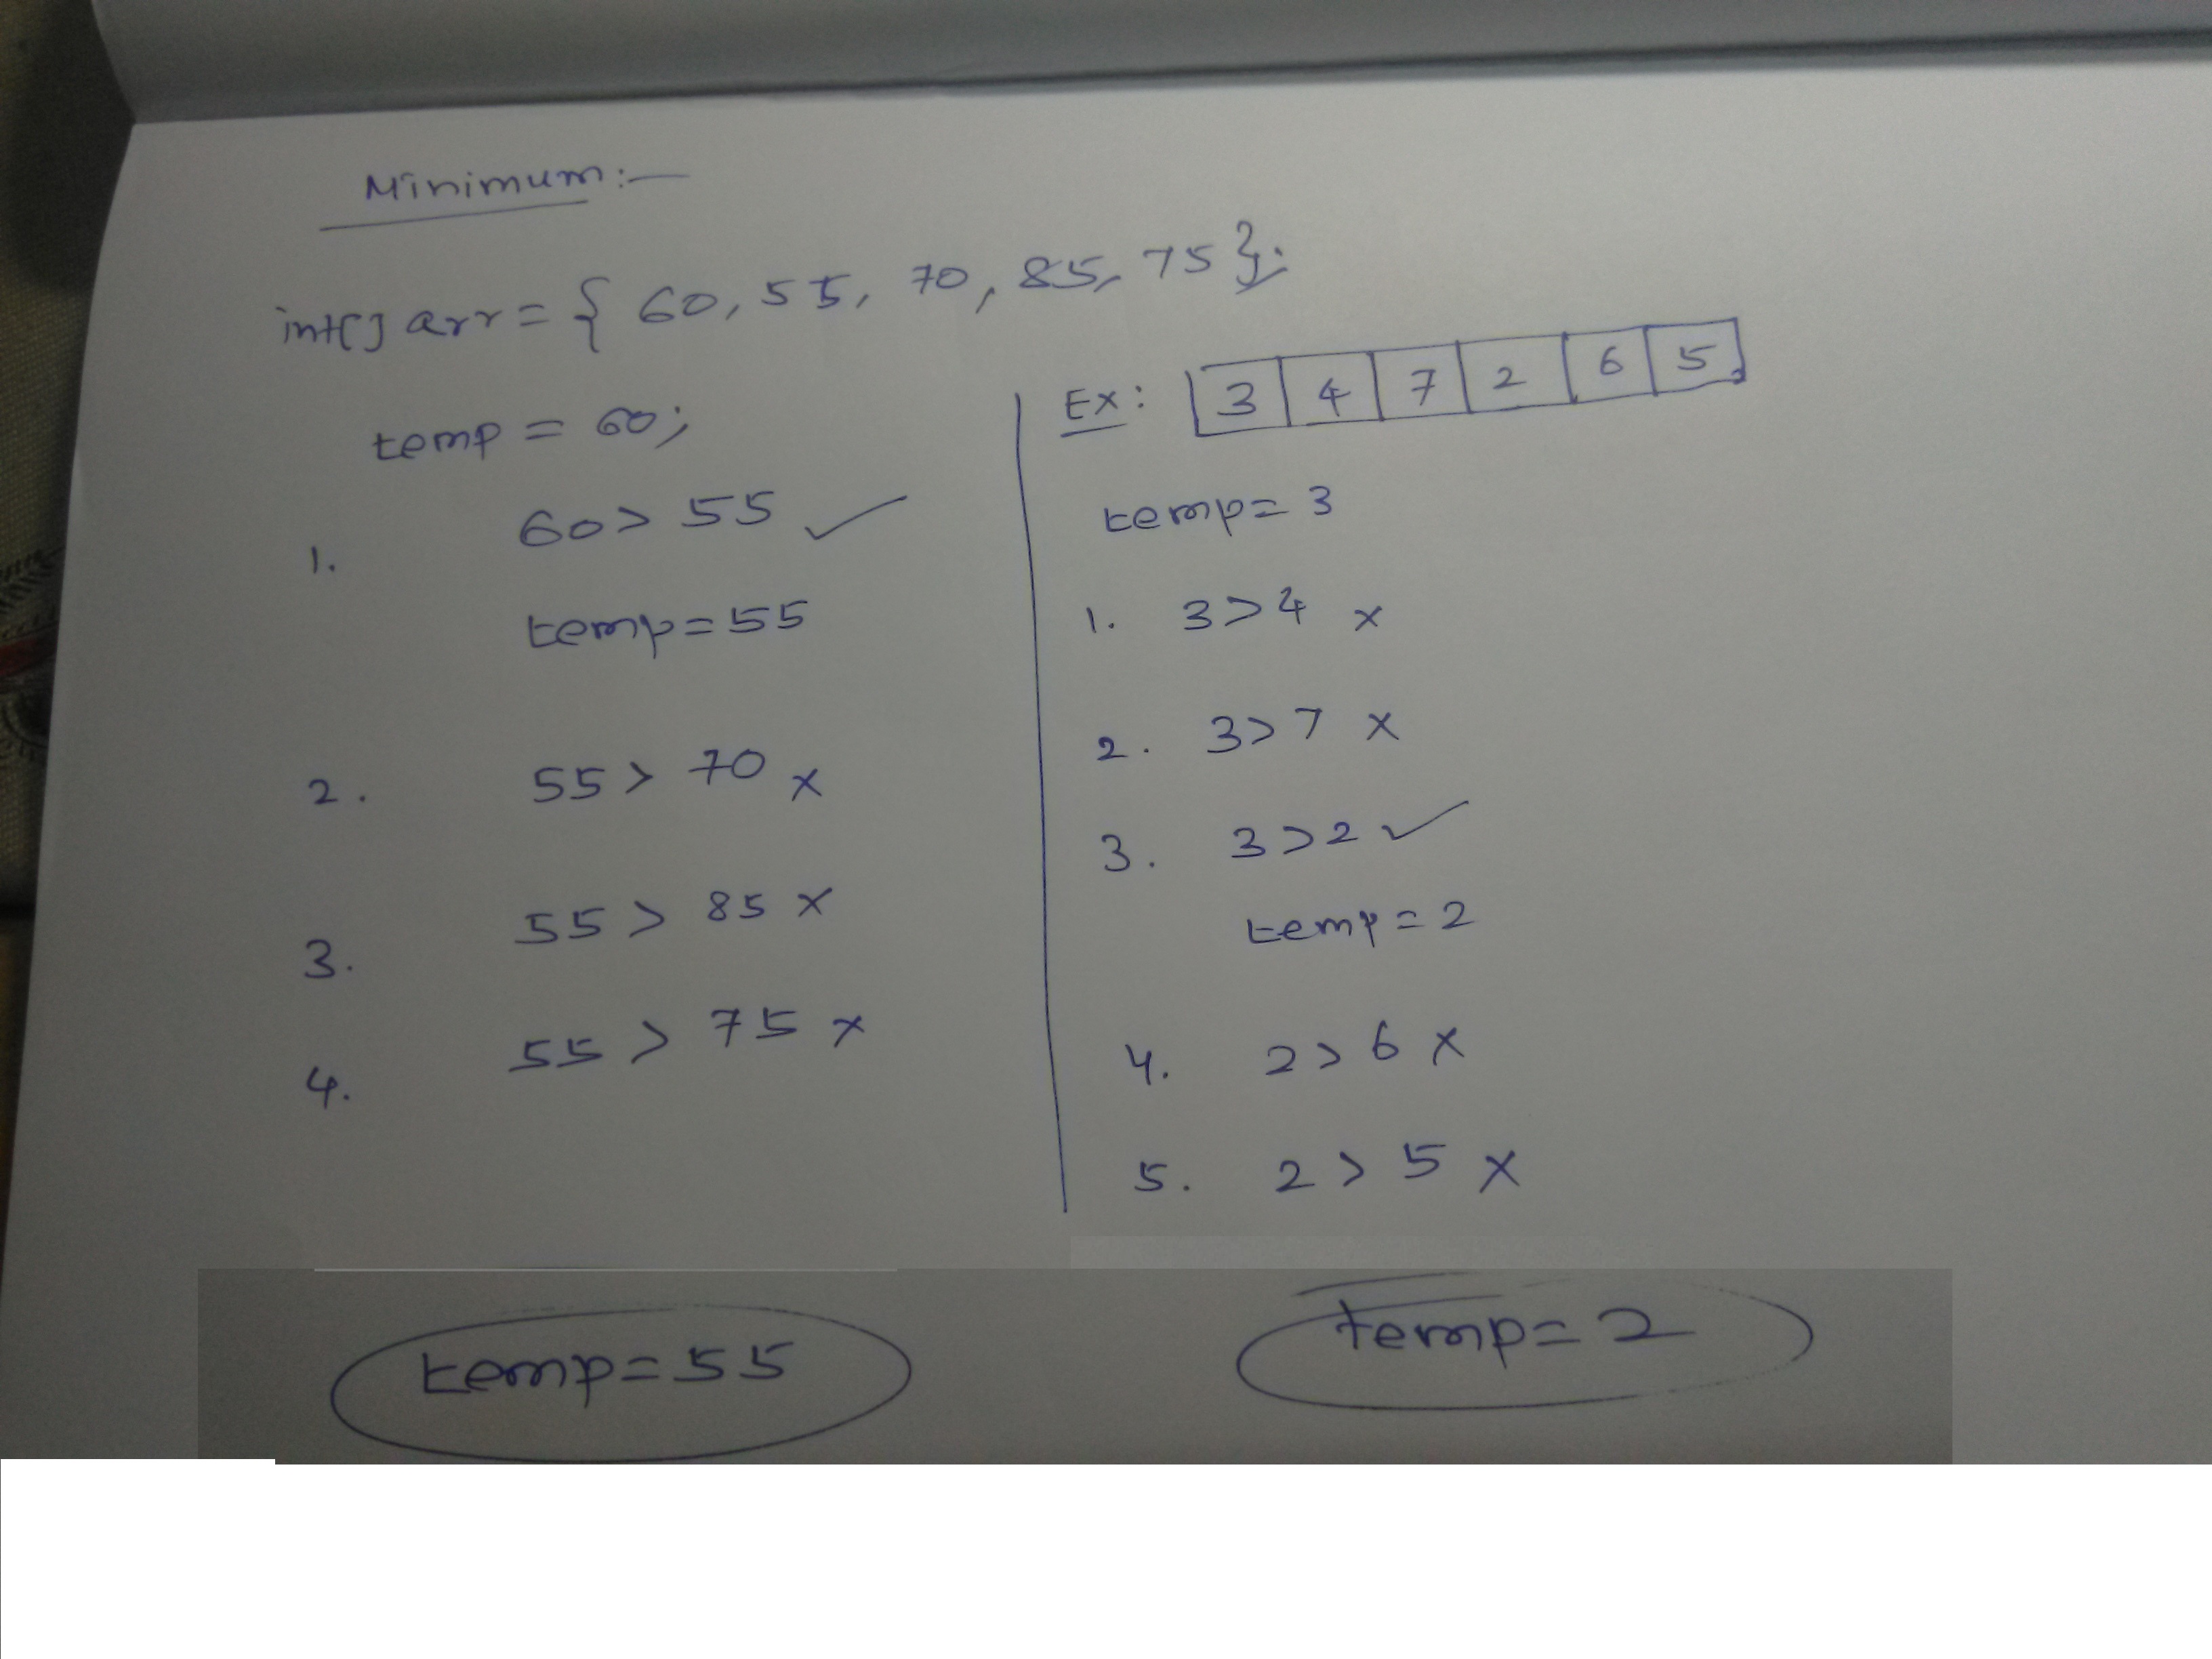 Minimum:-
int[] arr = { 60, 55, 70, 85, 75 };
temp = 60;
1. 60 > 55 ✓
temp = 55
2. 55 > 70 x
3. 55 > 85 x
4. 55 > 75 x
temp = 55
Ex: 3 4 7 2 6 5
temp = 3
1. 3 > 4 x
2. 3 > 7 x
3. 3 > 2 ✓
temp = 2
4. 2 > 6 x
5. 2 > 5 x
temp = 2